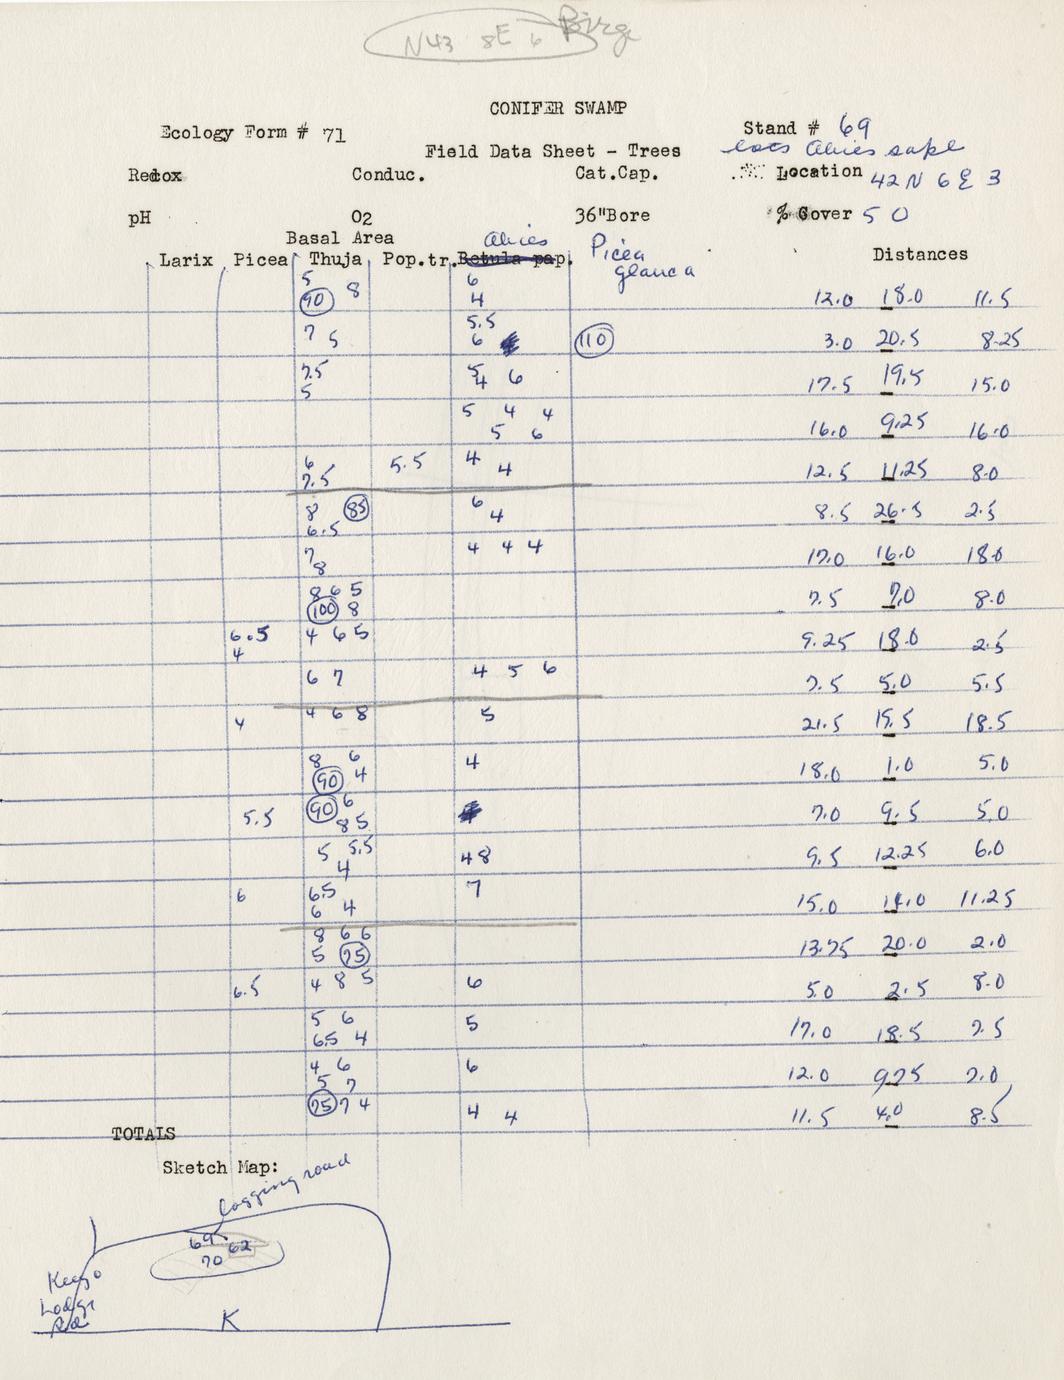 N43 8E 6 Birge
CONIFER SWAMP
Ecology Form # 71 Stand # 69
Field Data Sheet - Trees Abies sapl
Redox Conduc. Cat.Cap. Location 42N 6E 3
pH O2 36"Bore % Cover 50
Basal Area Abies Picea
Larix Picea Thuja Pop.tr. Betula pap. glauca Distances
5 8 6
90 4 12.0 18.0 11.5
7 5 5.5
6 110 3.0 20.5 8.25
7.5 5
5 4 6 17.5 19.5 15.0
5 4 4
5 6 16.0 9.25 16.0
6 5.5 4
7.5 4 12.5 11.25 8.0
8 85 6
6.5 4 8.5 26.5 2.5
7 4 4 4
8 17.0 16.0 18.0
8 6 5
100 8 7.5 7.0 8.0
6.5 4 6 5
4 9.25 18.0 2.5
6 7 4 5 6 7.5 5.0 5.5
4 4 6 8 5 21.5 15.5 18.5
8 6 4
90 4 18.0 1.0 5.0
90 6
5.5 8 5 7.0 9.5 5.0
5 5.5 4 8
4 9.5 12.25 6.0
6 6.5 7
6 4 15.0 14.0 11.25
8 6 6
5 75 13.75 20.0 2.0
6.5 4 8 5 6 5.0 2.5 8.0
5 6 5
6.5 4 17.0 18.5 7.5
4 6 6
5 7 12.0 9.75 7.0
75 7 4 4 4 11.5 4.0 8.5
TOTALS
Sketch Map:
logging road
69 62
70
Keego
Lodge
Rd
K